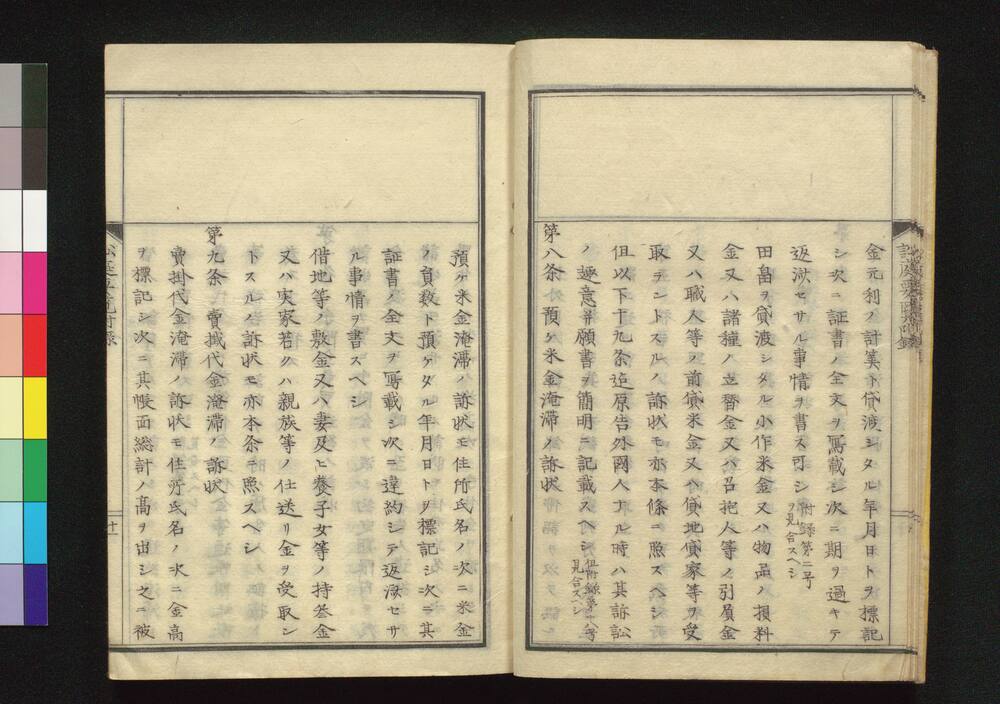 金元利ノ計筭ト貸渡シタル年月日トヲ標記
シ次ニ証書ノ全文ヲ寫載シ次ニ期ヲ過キテ
返濟セサル事情ヲ書ス可シ附録第二号ヲ見合スヘシ
田畠ヲ貸渡シタル小作米金又ハ物品ノ損料
金又ハ諸種ノ立替金又ハ召抱人等ノ引負金
又ハ職人等ノ前貸米金又ハ貸地貸家等ヲ受
取ラントスルノ訴状モ亦本條ニ照スヘシ
但以下十九条迠原告外國人ナル時ハ其訴訟
ノ趣意并願書ヲ簡明ニ記載スヘシ但附録第十八号見合スヘシ
第八条預ケ米金淹滞ノ訴状
預ケ米金淹滞ノ訴状モ住所氏名ノ次ニ米金
ノ員数ト預ケタル年月日トヲ標記シ次ニ其
証書ノ全文ヲ寫載シ次ニ違約シテ返濟セサ
ル事情ヲ書スヘシ
借地等ノ敷金又ハ妻及ヒ養子女等ノ持参金
又ハ実家若クハ親族等ノ仕送リ金ヲ受取ン
トスルノ訴状モ亦本条ニ照スヘシ
第九条 賣掛代金淹滞ノ訴状
賣掛代金淹滞ノ訴状モ住所氏名ノ次ニ金高
ヲ標記シ次ニ其帳面総計ノ高ヲ出シ之ニ被
十一